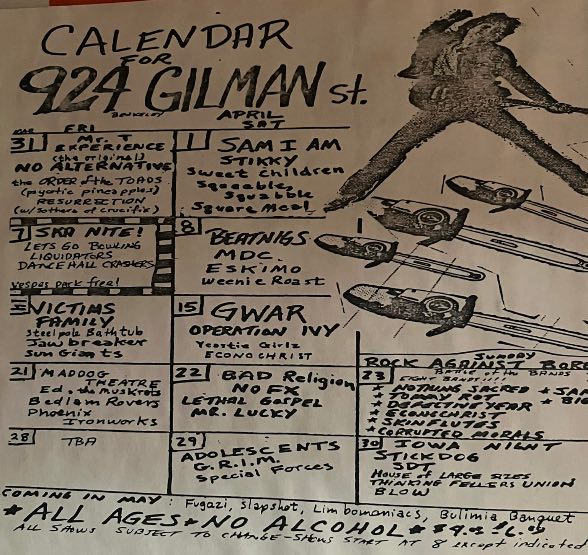 CALENDAR
FOR
924 GILMAN ST.
BERKELEY
APRIL
MAR FRI
SAT
31 MR. T
EXPERIENCE
(the original)
NO ALTERNATIVE
the ORDER of the TOADS
(psycotic pineapples)
RESURRECTION
(w/ sothers of crucifix)
1 SAM I AM
STIKKY
Sweet Children
Squeebles
Squbble
Square Meal
7 SKA NITE!
LETS GO BOWLING
LIQUIDATORS
DANCE HALL CRASHERS
Vespas park free!
8 BEATNIGS
MDC
ESKIMO
Weenie Roast
VICTIMS
FAMILY
Steel pole Bath tub
Jaw breaker
Sun Giants
15 GWAR
OPERATION IVY
Yeastie Girlz
ECONOCHRIST
21 MADDOG
THEATRE
Ed. & the Muskrats
Bedlam Rovers
Phoenix
Ironworks
22 BAD Religion
NOFX
LETHAL GOSPEL
MR. LUCKY
SUNDAY
ROCK AGAINST BORE
23 BATTLE of the BANDS
* NOTHING SACRED * SAM
* TOMMY ROT * BIG
* DEFECTIVE YEAR
* ECONICHRIST
* SKIN FLUTES
* CORRUPTED MORALS
28 TBA
29
ADOLESCENTS
G.R.I.M.
Special Forces
30 IOWA NIGHT
STICKDOG
SDT
HOUSE OF LARGE SIZES
THINKING FELLERS UNION
BLOW
COMING IN MAY: Fugazi, Slapshot, Limbomaniacs, Bulimia Banquet
* ALL AGES * NO ALCOHOL *
ALL SHOWS SUBJECT TO CHANGE - SHOWS START AT 8 except indicated